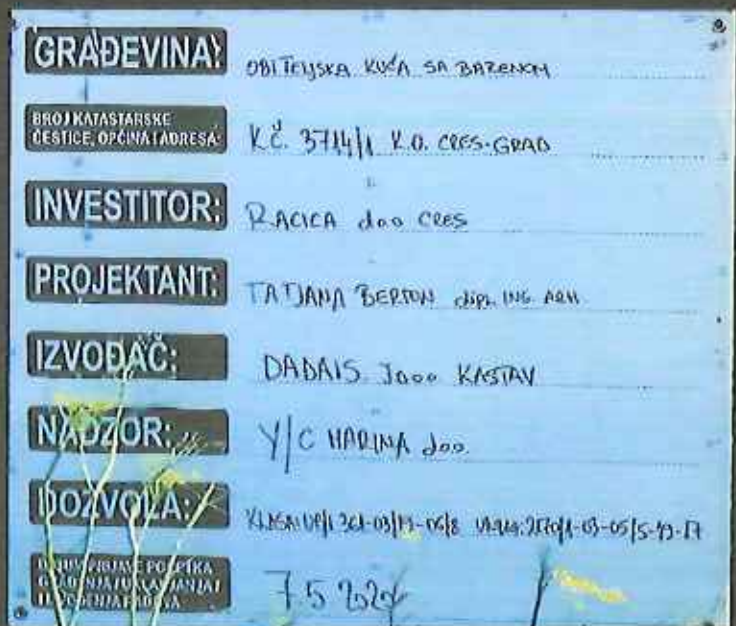 GRAĐEVINA: OBITELJSKA KUĆA SA BAZENOM
BROJ KATASTARSKE
ČESTICE, OPĆINA I ADRESA: K.Č. 3714/1 K.O. CRES-GRAD
INVESTITOR: RACICA doo CRES
PROJEKTANT: TATJANA BERTON dipl. ING. ARH.
IZVOĐAČ: DADAIS Jooo KASTAV
NADZOR: Y/C MARINA doo.
DOZVOLA: KLASA: UP/I 361-03/19-06/8
7.5